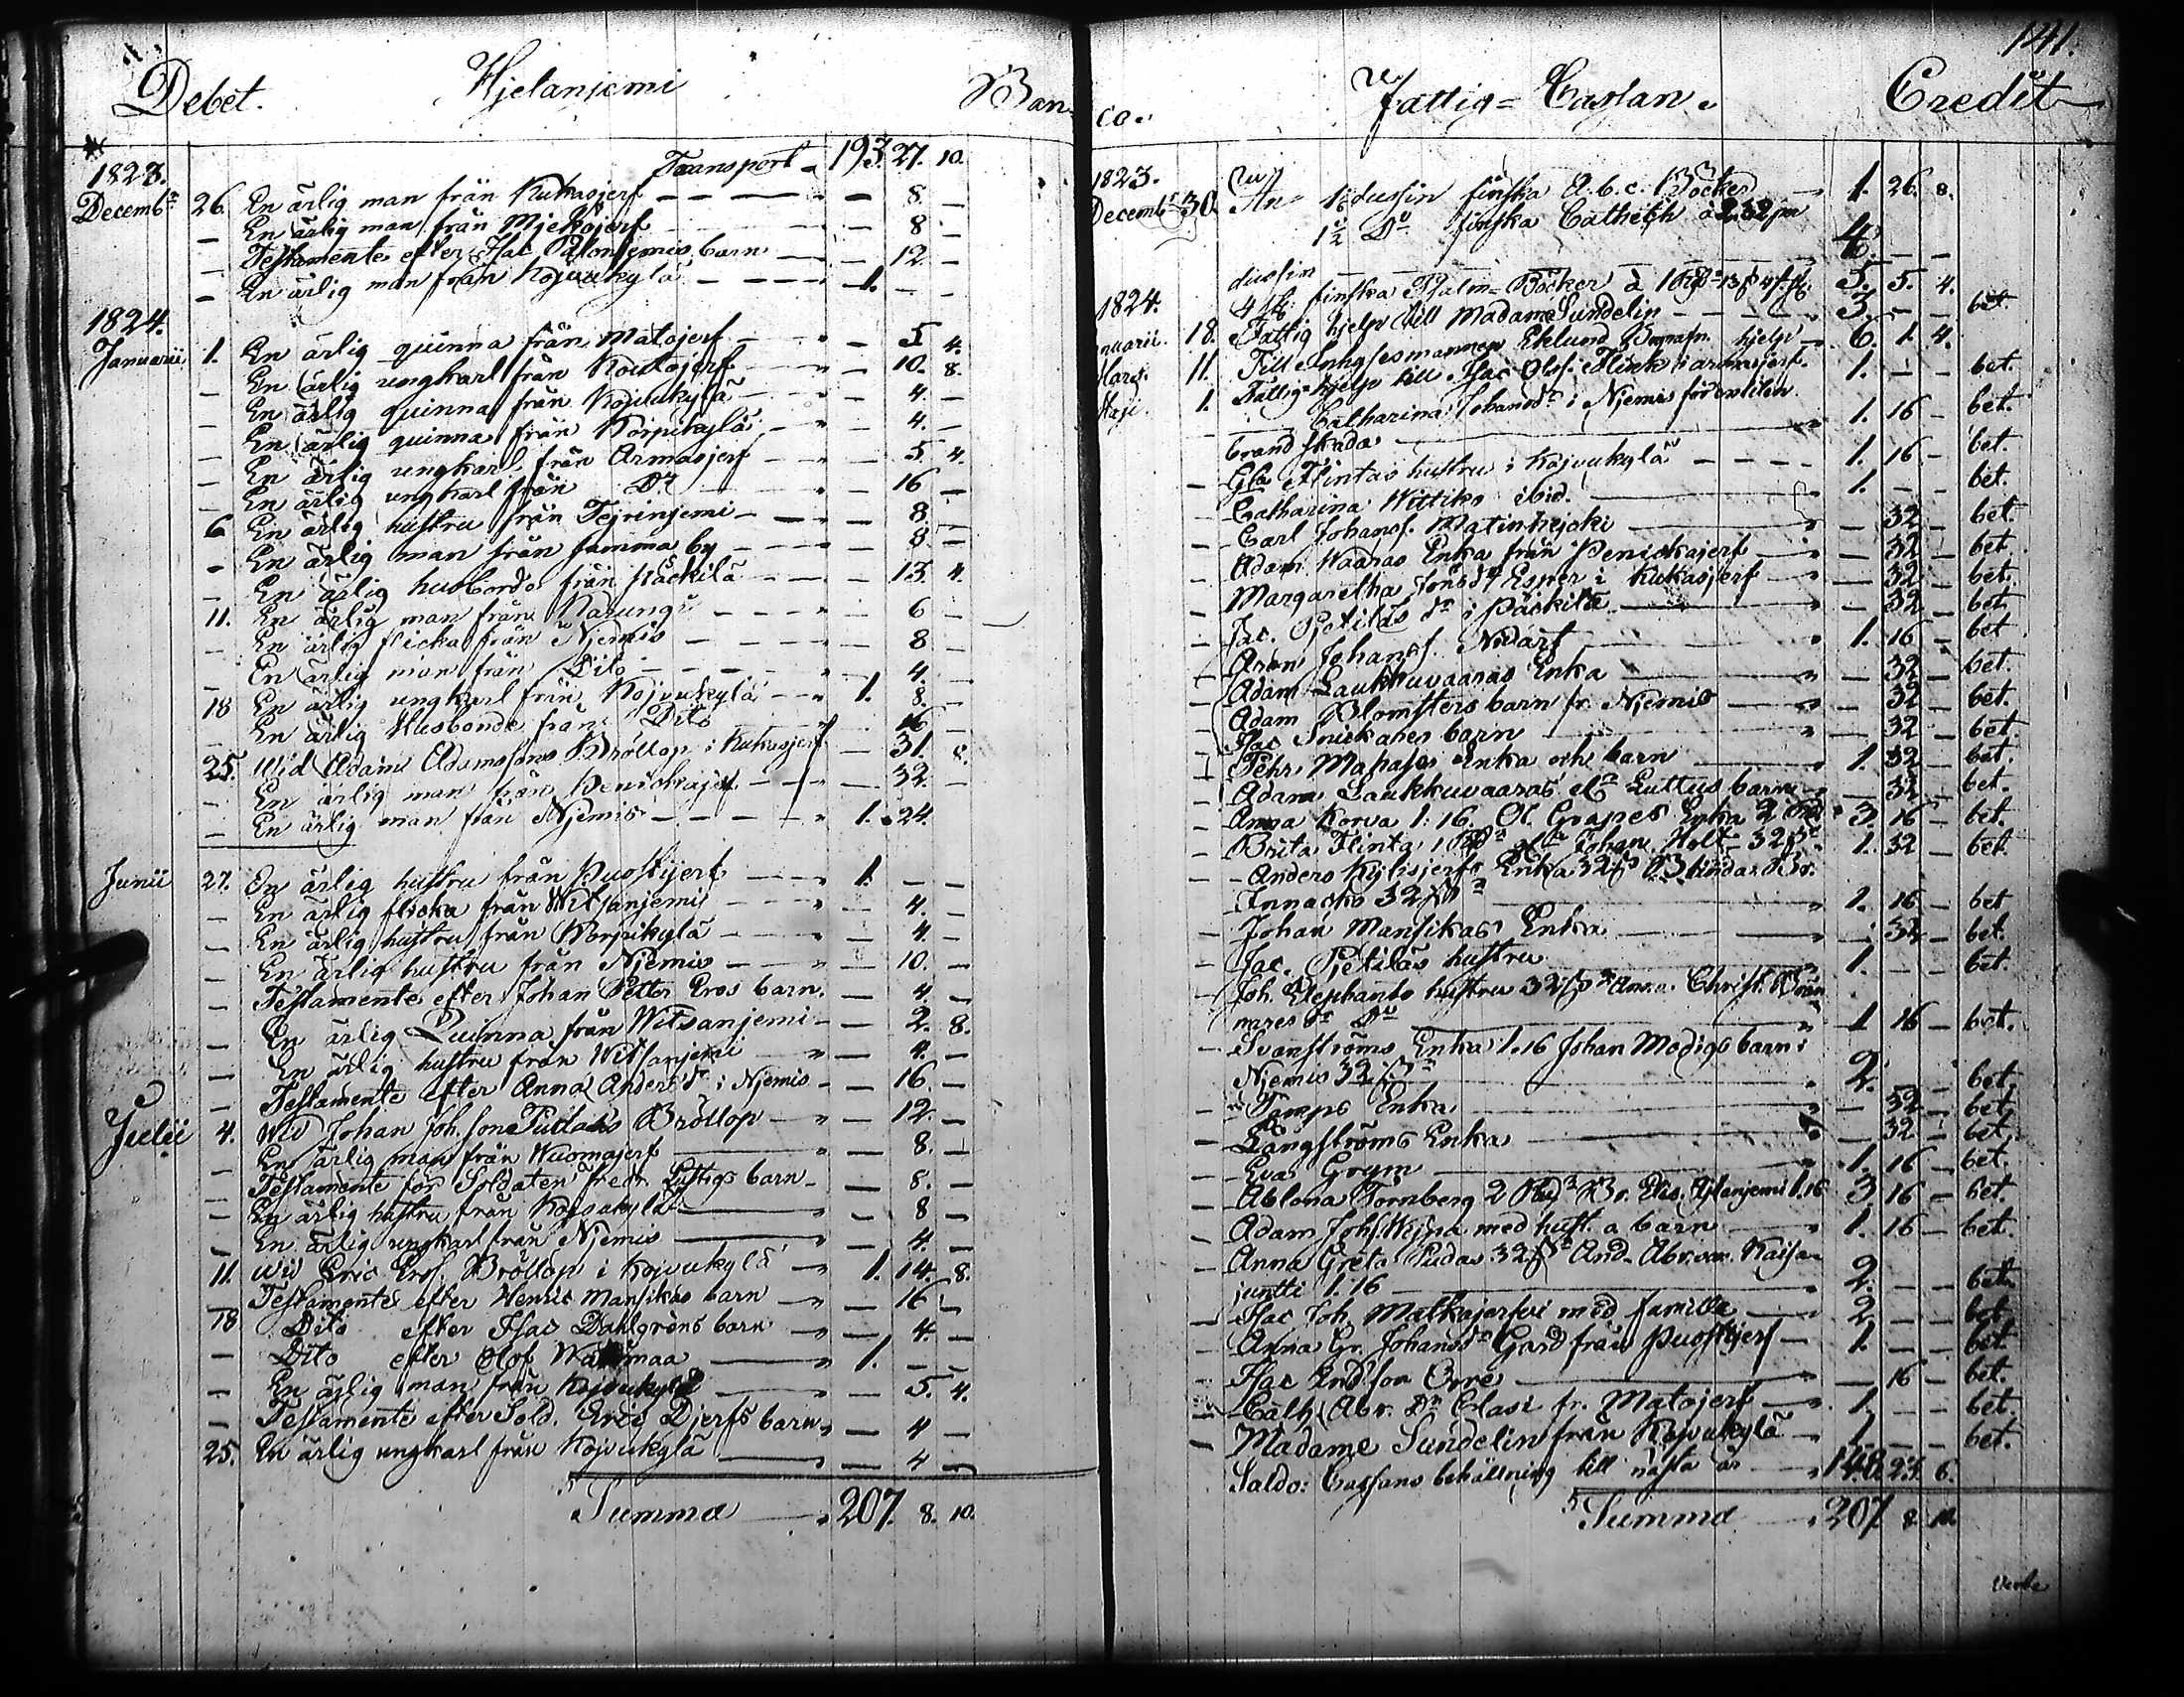 141.
Debet. Hjelanjemi Ban=
1823. Transport 193. 27. 10.
Decembr 26. En ärlig man från Kukasjerf — 8. —
— En ärlig man från Mjekojerf — 8 —
— Testamente efter Isac Palonjemis barn — 12. —
— En ärlig man från Kojvukylä 1. — —
1824.
Januarii 1. En ärlig quinna från Matojerf — 5 4.
— En ärlig ungkarl från Koutojerf — 10. 8.
— En ärlig quinna från Kojvukylä — 4. —
— En ärlig quinna från Korpikylä — 4. —
— En ärlig ungkarl från Armasjerf — 5 4.
— En ärlig ungkarl från Do — 16 —
6 En ärlig hustru från Tejrinjemi — 8 —
— En ärlig man från samma by — 8. —
— En ärlig husbonde från Päckilä — 13. 4.
11. En ärlig man från Karungi — 6 —
— En ärlig flicka från Njemis — 8 —
— En ärlig man från Dito — 4. —
18 En ärlig ungkarl från Kojvukylä 1. 8. —
— En ärlig Husbonde från Dito — 16 —
25. Wid Adam Adamssons Bröllop i Kukasjerf — 31. 8.
— En ärlig man från Penickajerf — 32. —
— En ärlig man från Njemis 1. 24.
Junii 27. En ärlig hustru från Puostijerf 1. — —
— En ärlig flicka från Witsanjemi — 4. —
— En ärlig hustru från Korpikylä — 4. —
— En ärlig hustru från Njemis — 10. —
— Testamente efter Johan Petter Eros barn. — 4. —
— En ärlig Quinna från Witsanjemi — 2. 8.
— En ärlig hustru från Witsanjemi — 4. —
— Testamente efter Anna Anders dr i Njemis — 16. —
Julii 4. Wid Johan Joh. sons Bröllop — 12. —
— En ärlig man från Wuomajerf — 8. —
— Testamente för Soldaten Fredr. Luttigs barn — 8. —
— En ärlig hustru från Kojvukylä — 8 —
— En ärlig ungkarl från Njemis — 4. —
11. Wid Eric Ers. Bröllop i Kojvukylä 1. 14. 8.
— Testamente efter Henric Mansikas barn — 16 —
18 Dito efter Isac Dahlgrens barn — 4. —
— Dito efter Olof 1. — —
— En ärlig man från Kojvukylä — 5. 4.
— Testamente efter Sold. Eric Djerfs barn — 4 —
25. En ärlig ungkarl från Kojvukylä — 4 —
Summa 207. 8. 10.
co. Fattig=Cassan. Credit
1823.
Decembr 30. An dussin finska A.b.c. Böcker 1. 26. 8.
1½ Do finska Cathech à 2.32 pr
dussin 4. — —
4 st. finska Psalm=Böcker 5. 5. 4.
1824.
nuarii. 18. Fattig hjelp till Madame Sundelin 3. — — bet.
Mars. 11. Till Eklund hjelp 6. 1. 4.
Maji. 1. Fattig=hjelp till Isac Ols. Flink i armasjerf. 1. — — bet.
— Catharina Johansdr i Njemis för
brand skada 1. 16 — bet.
— Gla Flintas hustru i Kojvukylä 1. 16 — bet.
— Catharina Wittiko ibid. 1. — — bet.
— Carl Johanss. Matinhejcki — 32 — bet.
— Adam Waaras Enka från Penickajerf — 32 — bet.
— Margaretha Jönsdr Esper i Kukasjerf — 32 — bet.
— Jac. Pjetiläs dr i Päckilä — 32 — bet.
— Aron Johanss. Nidarf 1. 16 — bet.
— Adam Laukkuvaaras Enka — 32 — bet.
— Adam Blomsters barn fr. Njemis — 32 — bet.
— Isac Snickares barn — 32 — bet.
— Pehr Enka och barn 1. 32 — bet.
— Adam Laukkuvaaras Luttus barn — 32 — bet.
— Anna Korva 1:16. Ol. Grapes Enka 2 3 16 — bet.
— Brita Flinta 1 Johan Holt 32 1. 32 — bet.
— Anders Kylisjerfs Enka 32
Innacko 32 1. 16 — bet
— Johan Mansikas Enka — 32 — bet.
— Jac. Pjetiläs hustru 1. — — bet.
— Joh. Elephants hustru 32 Anna Christ. Brän
nares dr Do 1 16 — bet.
— Svanströms Enka 1.16 Johan Modigs barn i
Njemis 32 2. — — bet.
— Tamps Enka — 32 — bet.
— Långströms Enka — 32 — bet.
— Eva Grym 1. 16 — bet.
— Ablona Törnberg 2 Elis. Hjelanjemi 1.16 3 16 — bet.
— Adam Johs. med hust. o barn 1. 16 — bet.
Anna Greta Pudas 32 And. Abr. son Kaisa=
juntti 1.16 2. — — bet.
— Isac Joh. Matkajerfvi med famille 2. — — bet.
— Anna Gr. Johansdr Gard från Puostijerf 1. — — bet.
— Isac And son Orre — 16 — bet.
— Cath. Abr. Dr Clasi fr. Matojerf 1. — — bet.
— Madame Sundelin från Kojvukylä 1. — — bet.
Saldo: Cassans behållning till nästa år 148. 23. 6.
Summa 207. 8. 10.